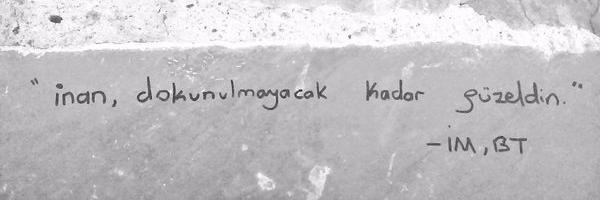 " inan, dokunulmayacak kadar güzeldin. "
- İM, BT